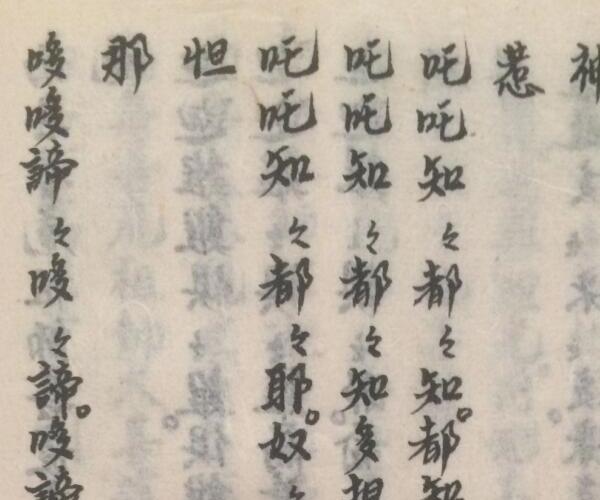 神
惹
吒吒知々都々知。都知
吒吒知々都々知多担
吒吒知々都々耶。奴々
怛
那
哆哆諦々哆々諦。哆諦